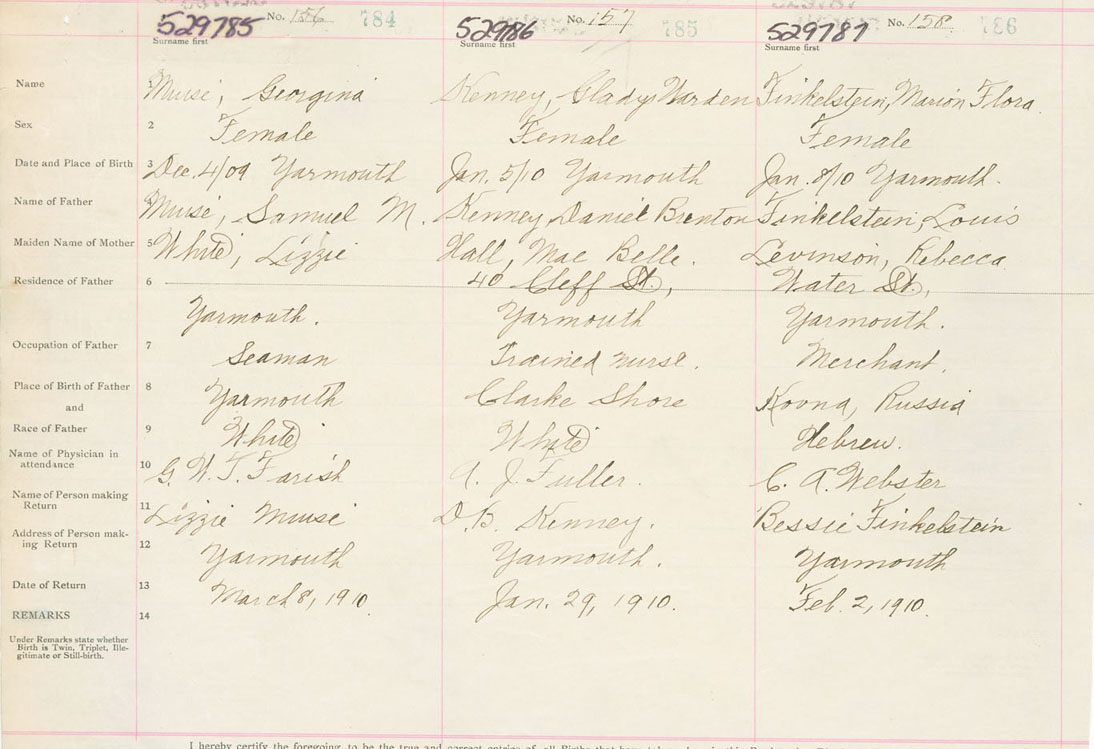 529785 No. 156 784 529786 No. 157 785 529787 No. 158 786
Surname first Surname first Surname first
Name 1 Muise, Georgina Kenney, Gladys Warden Finkelstein, Marion Flora.
Sex 2 Female Female Female
Date and Place of Birth 3 Dec. 4/09 Yarmouth Jan. 5/10 Yarmouth Jan. 8/10 Yarmouth.
Name of Father 4 Muise, Samuel M. Kenney, Daniel Brenton Finkelstein, Louis
Maiden Name of Mother 5 White, Lizzie Hall, Mae Belle. Levinson, Rebecca
Residence of Father 6 40 Cleff St., Water St.,
Yarmouth. Yarmouth Yarmouth.
Occupation of Father 7 Seaman Trained nurse. Merchant.
Place of Birth of Father 8 Yarmouth Clarke Shore Kovna, Russia
and
Race of Father 9 White White Hebrew.
Name of Physician in
attendance 10 G. W. T. Farish A. J. Fuller. C. A. Webster
Name of Person making
Return 11 Lizzie Muise D. B. Kenney. Bessie Finkelstein
Address of Person mak-
ing Return 12 Yarmouth Yarmouth. Yarmouth
Date of Return 13 March 8, 1910. Jan. 29, 1910. Feb. 2, 1910.
REMARKS 14
Under Remarks state whether
Birth is Twin, Triplet, Ille-
gitimate or Still-birth.
I hereby certify the foregoing, to be the true and correct entries of all Births that have